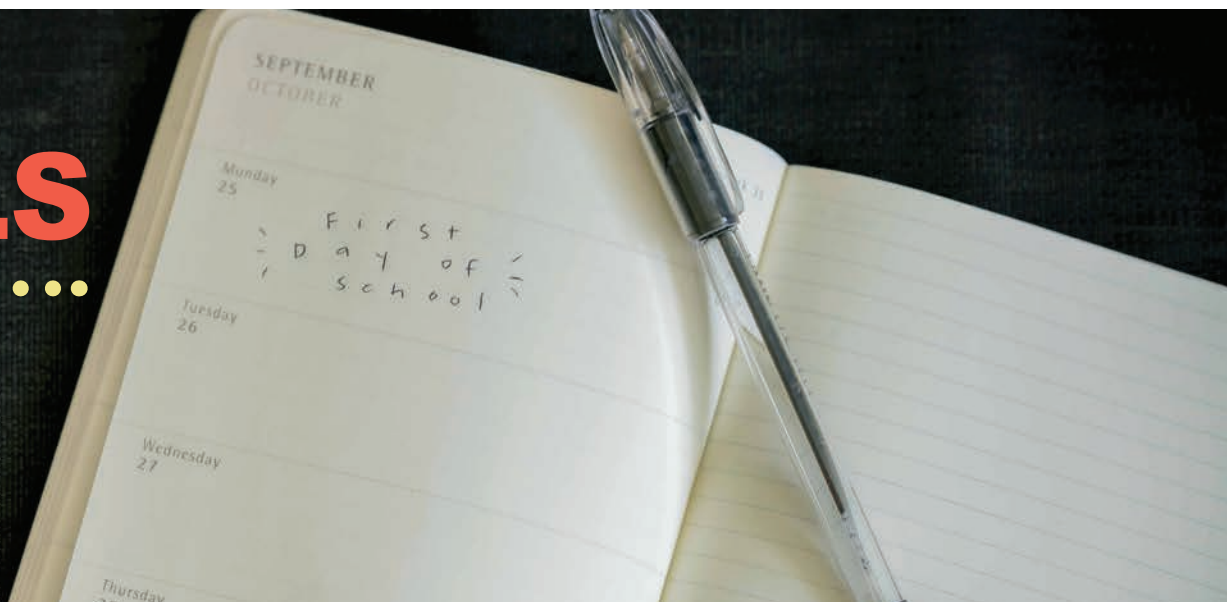 SEPTEMBER
OCTOBER
Monday
25
First
Day of
school
Tuesday
26
Wednesday
27
Thursday
LS